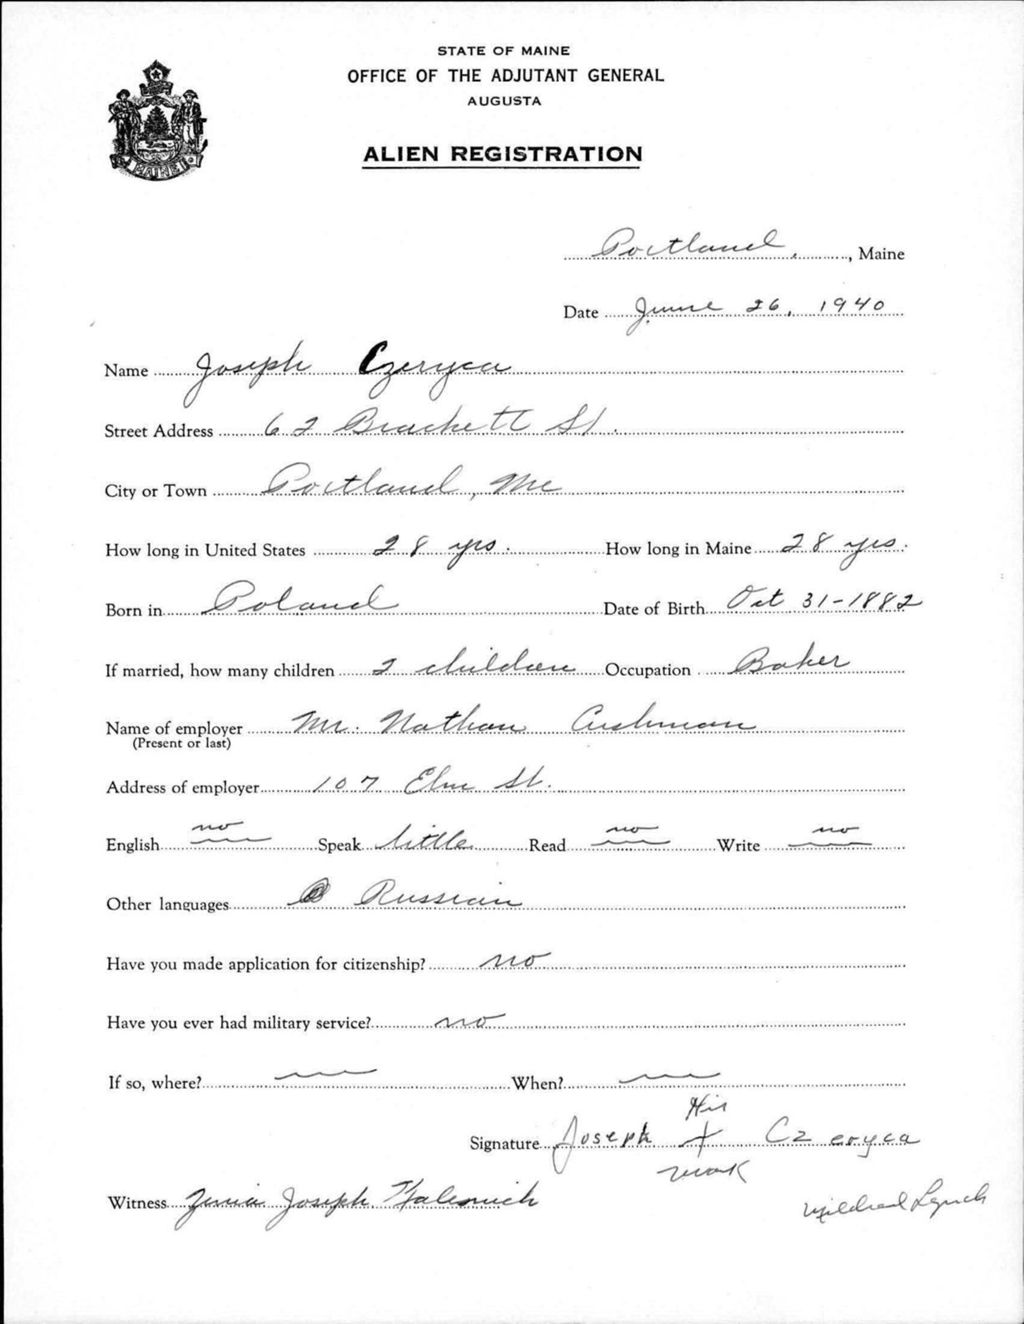 STATE OF MAINE
OFFICE OF THE ADJUTANT GENERAL
AUGUSTA
ALIEN REGISTRATION
MAINE
Portland, Maine
Date June 26, 1940
Name Joseph Czeryca
Street Address 62 Brackett St.
City or Town Portland, Me
How long in United States 28 yrs. How long in Maine 28 yrs.
Born in Poland Date of Birth Oct 31-1882
If married, how many children 2 children Occupation Baker
Name of employer Mr. Nathan Cushman
(Present or last)
Address of employer 107 Elm St.
English no Speak little Read no Write no
Other languages Russian
Have you made application for citizenship? no
Have you ever had military service? no
If so, where? When?
His
Signature Joseph + Czeryca
mark
Witness Joseph Mildred Lynch